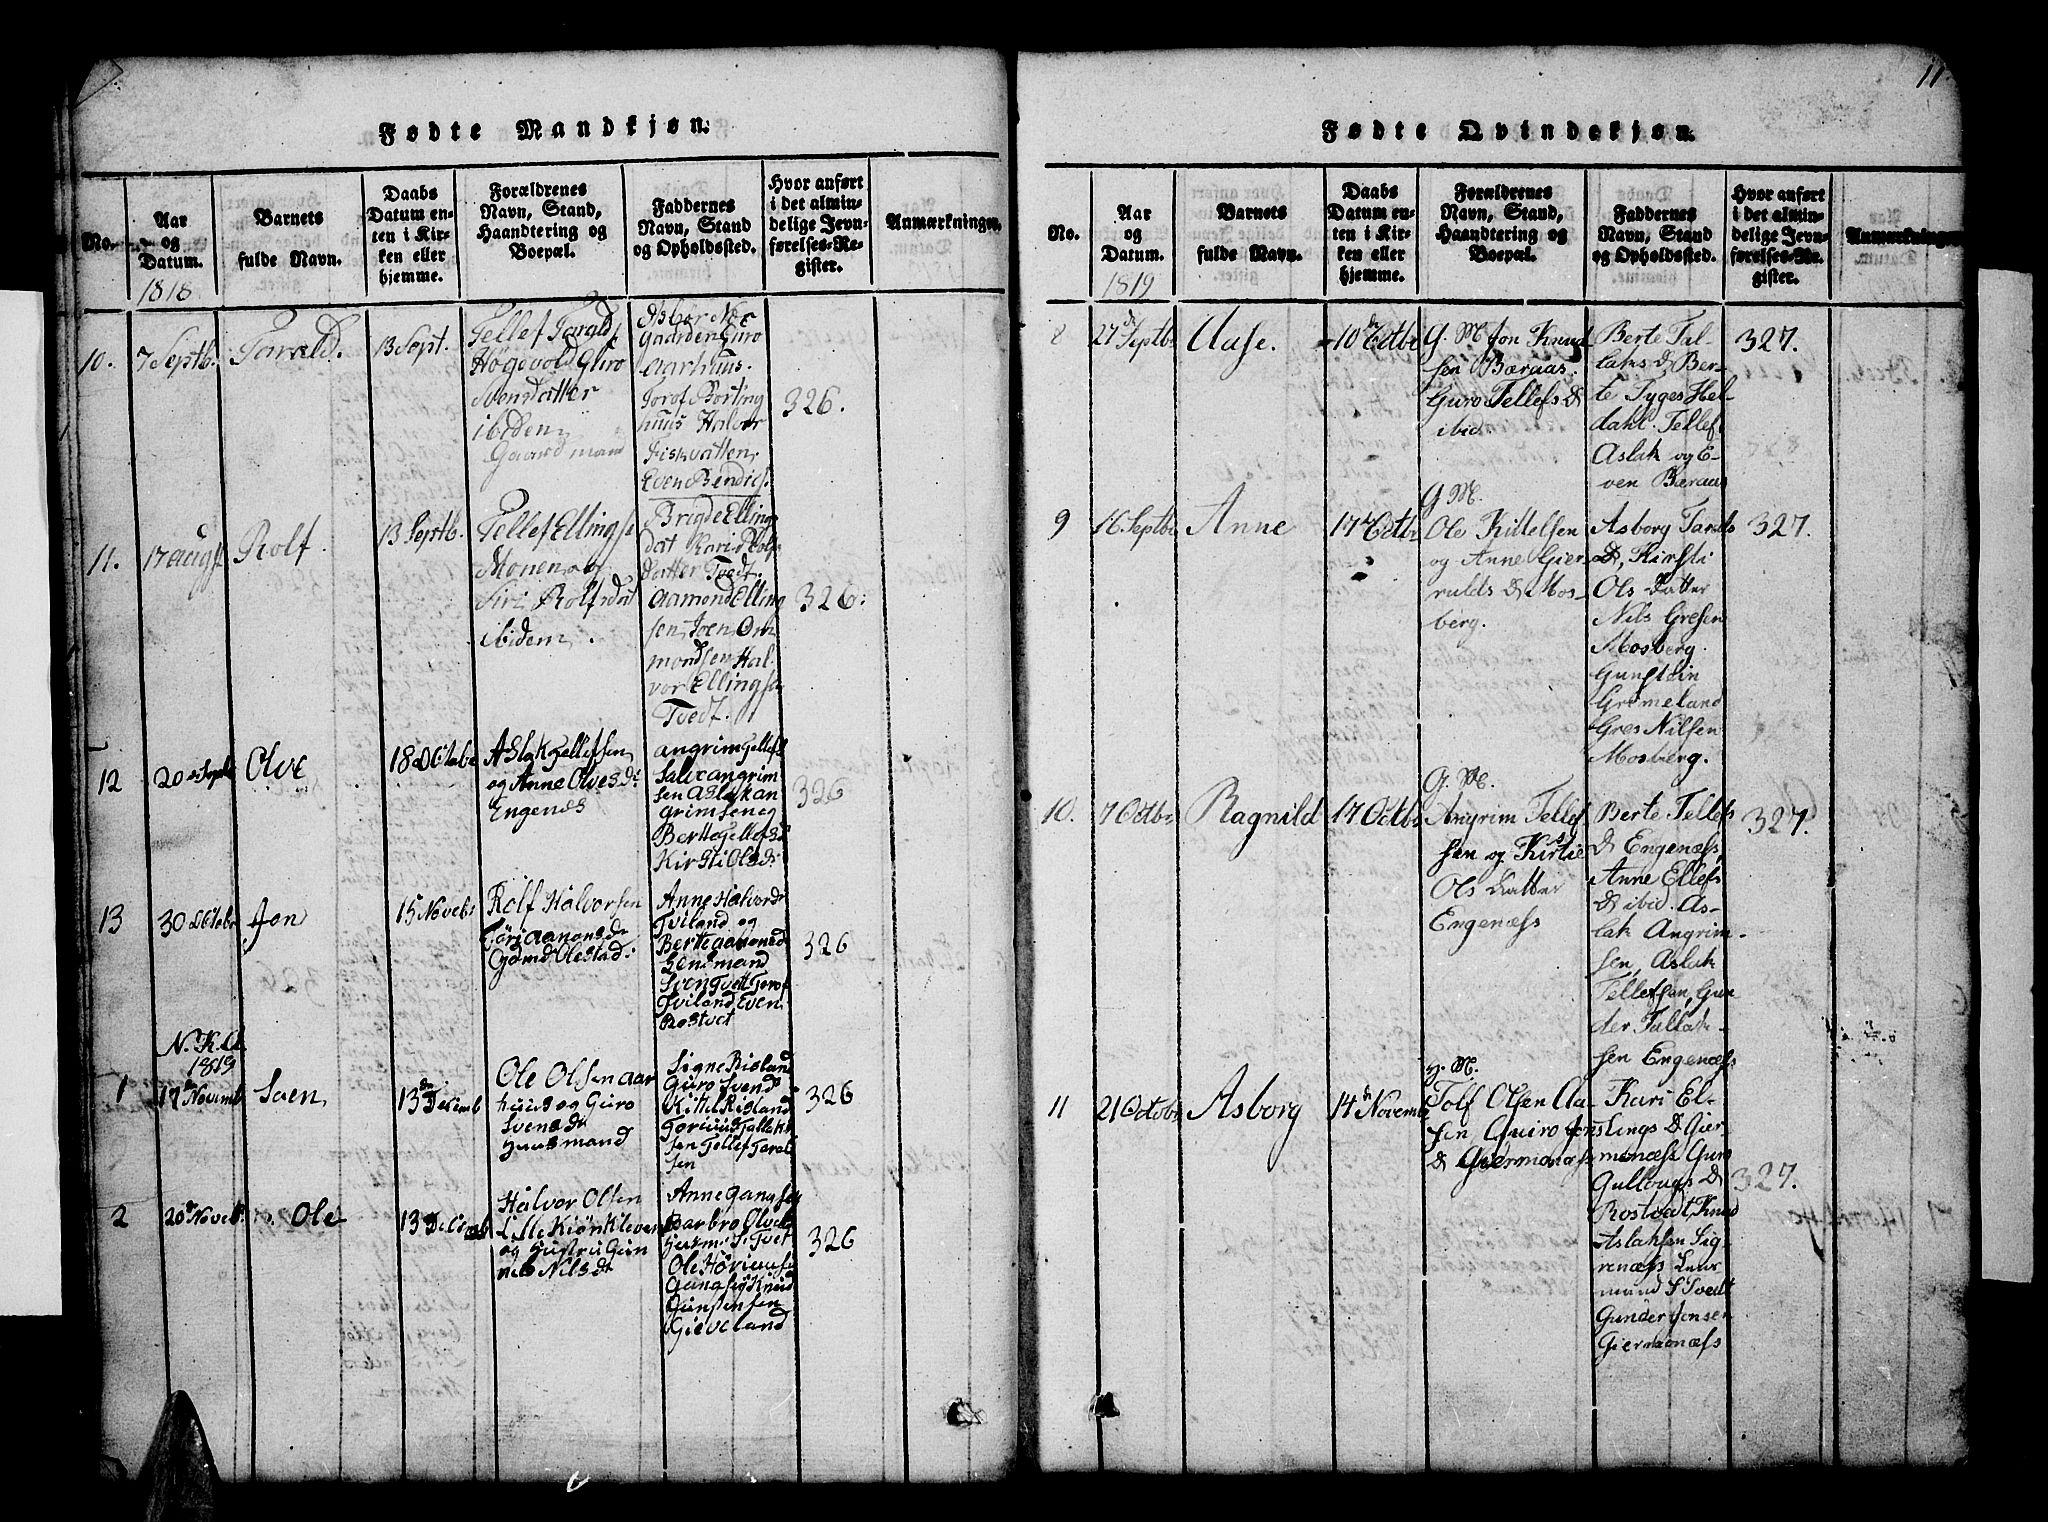 11
Fødte Mandkjøn.
No.
Aar
og
Datum.
1818
Barnets
fulde Navn.
Daabs
Datum en-
ten i Kir-
ken eller
hjemme.
Forældrenes
Navn, Stand,
Haandtering og
Boepæl.
Faddernes
Navn, Stand
og Opholdssted.
Hvor anført
i det almin-
delige Jevn-
førelses-Re-
gister.
Anmærkninger.
10.
7 Septb.
Tarald.
13 Sept.
Tellef Tarald
Høgevold Guro
Svensdatter
ibidem
Gaardmand
Asbor Nor
gaarden Guro
Aarhuus.
Torof Borting
huus Halvor
Fiskvatten,
Even Bendics.
326.
11.
17 Augs
Rolf.
13 Septb.
Tellef Ellings
Monen og
Siri Rolfsdat
ibidem.
Brigde Ellings
dat Kari Rolfs
datter Tvedt.
Aamond Elling
sen, Joen Om
mondsen Hal
vor Ellings
Tvedt.
326.
12
20 Septb
Olve
18 Octobr
Aslak Tellefsen
og Anne Olves dr
Engenes
Angrim Tellefs
Salve Angrim
sen Aslak An
grimsen og
Berthe Tellefsd
Kirsti Olsd
326
13
30 Octobr
Jon
15 Novebr
Rolf Halvorsen
Tøri Aanonsdr
Gdmd Olestad
Anne Halvorsd
Tviland og
Berthe Aanonsd
Lensmand
Sveng Tvett Torof
Tviland Even
Rostvet
326
N. K. A.
1819
1
17 Novemb
Soen
13de Decemb
Ole Olsen Aar
huus og Guro
Svensdr
Huusmand
Signe Risland
Guro Svensd
Kittel Risland
Gunuld Tallaks
sen Tellef Taral
sen
326
2
20 Noveb.
Ole
13 Decemb
Halvor Olsen
Lille Kiørkleven
og Hustru Gun
nild Nilsdr
Anne Gangsøy
Barbro Olves
Husm. S. Tvet
Ole
Gangsøy Knud
Gunstensen
Gieveland
326
Fødte Qvindekjøn.
No.
Aar
og
Datum.
1819
Barnets
fulde Navn.
Daabs
Datum en-
ten i Kir-
ken eller
hjemme.
Forældrenes
Navn, Stand,
Haandtering og
Boepæl.
Faddernes
Navn, Stand
og Opholdssted.
Hvor anført
i det almin-
delige Jevn-
førelses-Re-
gister.
Anmærkninger.
8
27de Septbr
Aase.
10de Octbr
G. M. Jon Knud
sen Bæraas.
Guro Tellefs D
ibid.
Berte Tal-
laks D Ber-
te Tyges Hel-
dahl. Tellef
Aslak og E-
ven Bæraas
327.
9
16 Septbr
Anne
17de Octbr
G. M.
Ole Kittelsen
og Anne Gier-
rulds D Mos-
berg.
Asborg Tarels
D, Kirsti
Ols Datter
Nils Gresen
Mosberg.
Gunstein
Grimeland
Gres Nilsen
Mosberg.
327.
10.
7 Octbr
Ragnild
17 Octbr
G. M.
Angrim Tellef
sen og Kirstie
Ols Datter
Engenæss
Berte Tellefs
D Engenæss,
Anne Ellefs
D ibid. As-
lak Angrim-
sen, Aslak
Tellefsen, Gun
der Tallak-
sen Engenæss
327.
11
21 Octobr
Asborg
14de Novemb
H. M.
Tolf Olsen Aa-
sen Guro Jons
D Giermonæss
Kari El-
lings D Gier-
monæss Guro
Gullougs D
Rostvedt, Knud
Aslaksen Sig-
renæss Lens
mand S Tvedt
Gunder Jonsen
Giermonæss
327.